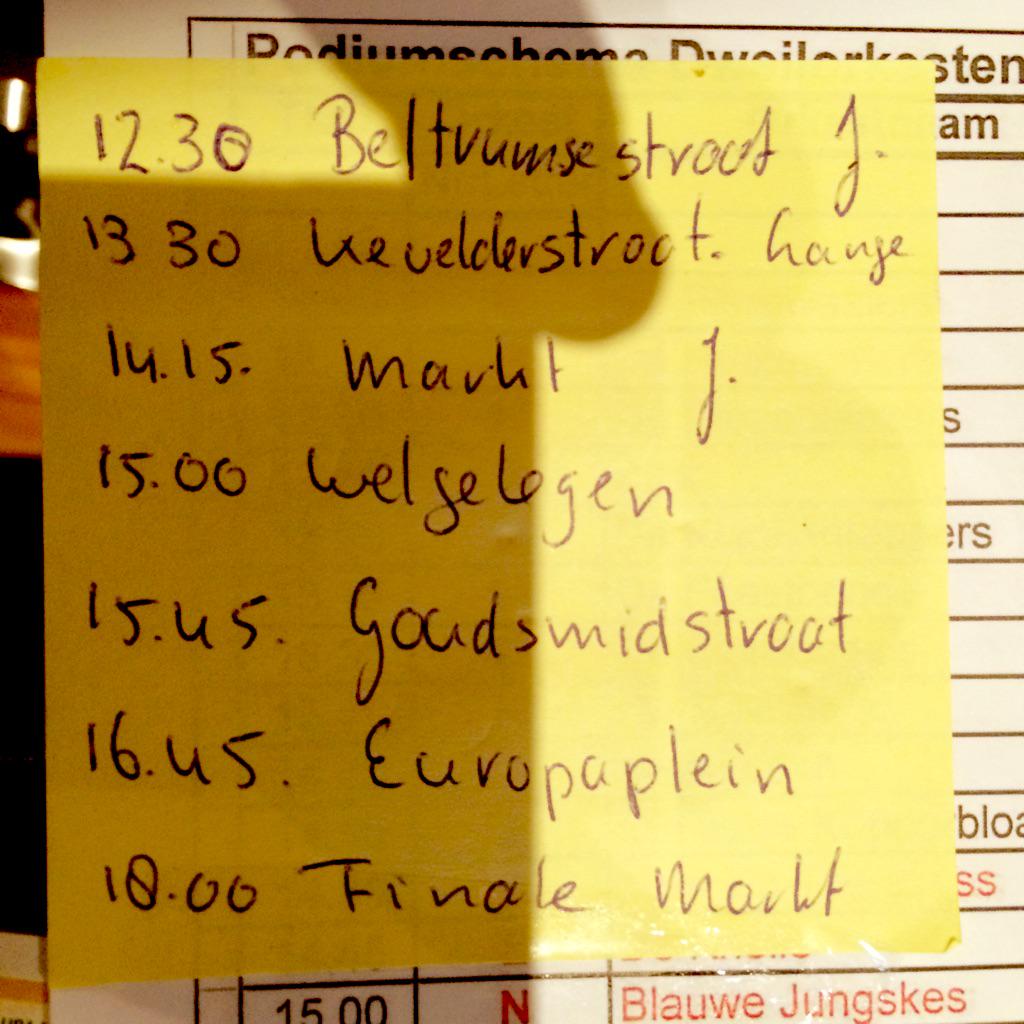 Podiumschema Dweilorkesten
am
12.30 Beltrumsestraat J.
13 30 Kevelderstraat. Lange
14.15. Markt J.
s
15.00 Welgelegen
ers
15.45. Goudsmidstraat
16.45. Europaplein
bloa
18.00 Finale Markt
ss
15.00 N Blauwe Jungskes